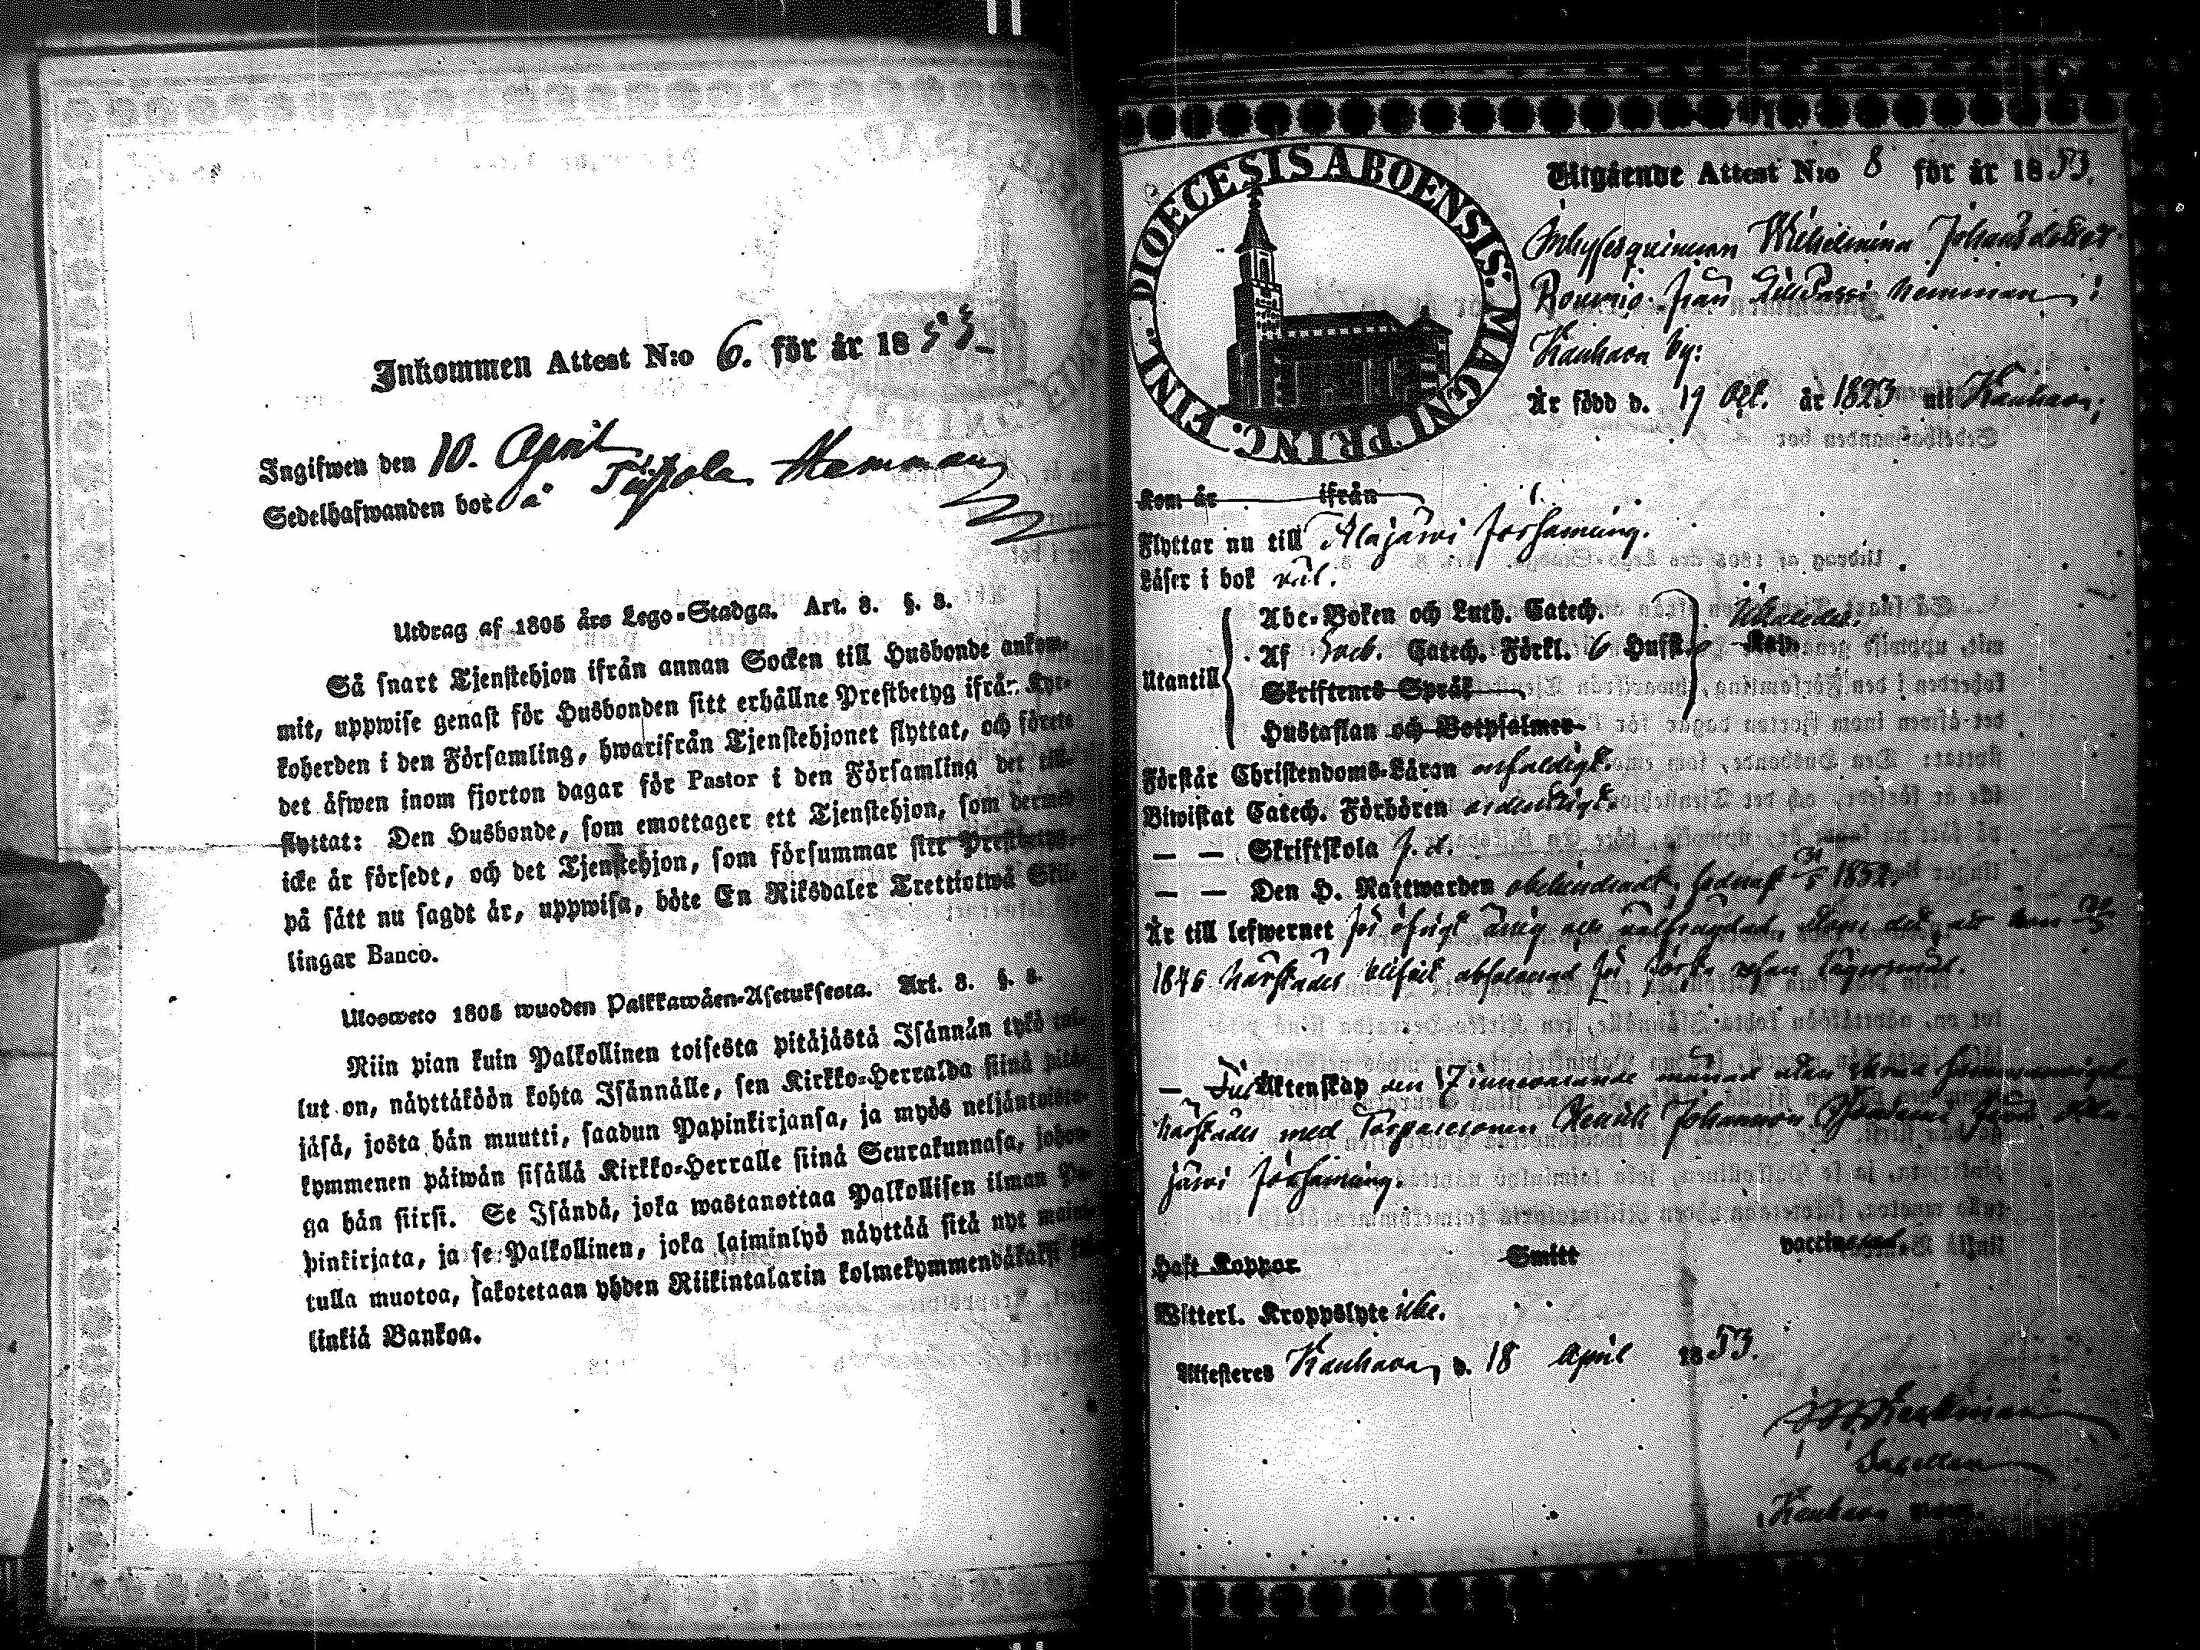 Inkommen Attest N:o 6. för år 1853
Ingifwen den 10. April
Sedelhafwanden bor å Hemman
Utdrag af 1805 års Lego-Stadga. Art. 8. §. 3.
Så snart Tjenstehjon ifrån annan Socken till Husbonde ankom-
mit, uppwise genast för Husbonden sitt erhållne Prestbetyg ifrån Kyr-
koherden i den Församling, hwarifrån Tjenstehjonet flyttat, och förete
det äfwen inom fjorton dagar för Pastor i den Församling det till-
flyttat: Den Husbonde, som emottager ett Tjenstehjon, som dermed
icke är försedt, och det Tjenstehjon, som försummar sitt Prestbetyg,
på sätt nu sagdt är, uppwisa, böte En Riksdaler Trettiotwå Skil-
lingar Banco.
Ulosweto 1805 wuoden Palkkawäen-Asetuksesta. Art. 8. §. 3.
Niin pian kuin Palkollinen toisesta pitäjästä Isännän tykö tul-
lut on, näyttäköön kohta Isännälle, sen Kirkko-Herralda siinä pitä-
jäsä, josta hän muutti, saadun Papinkirjansa, ja myös neljäntoista-
kymmenen päiwän sisällä Kirkko-Herralle siinä Seurakunnasa, johon-
ga hän siirsi. Se Isändä, joka wastanottaa Palkollisen ilman Pa-
pinkirjata, ja se Palkollinen, joka laiminlyö näyttää sitä nyt mainit-
tulla muotoa, sakotetaan yhden Riikintalarin kolmekymmendäkaksi
linkiä Bankoa.
DIOECESIS ABOENSIS. MAGNI PRINC. FINL.
Utgående Attest N:o 8 för år 1853.
Inhysesqvinnan Wilhelmina Johansdotter
från hemman i
Kauhava by:
Är född d. 19 Oct. år 1823 uti Kauhava;
Kom år ifrån
Flyttar nu till Alajärwi församling.
Läser i bok väl.
Utantill
Abc-Boken och Luth. Catech.
Af Catech. Förkl. 6 Hufst.
Skriftenes Språk
Hustaflan och Botpsalmer
Förstår Christendoms-Läran enfaldigt.
Biwistat Catech. Förhören ordentligt.
— — Skriftskola
— — Den H. Nattwarden obehindradt, sednast 1852.
Är till lefwernet för öfrigt ärlig och välfrägdad, utom det, att hon
1846 härstädes blifvit absolverad för första resan lägersmål.
— Till Äktenskap den 17 innevarande månad
härstädes med Torparesonen Henrik Johansson från Ala-
järwi församling.
Haft Koppor Smitt vaccinerad
Witterl. Kroppslyte icke.
Attesteres Kauhava, d. 18 April 1853.
Kauhava